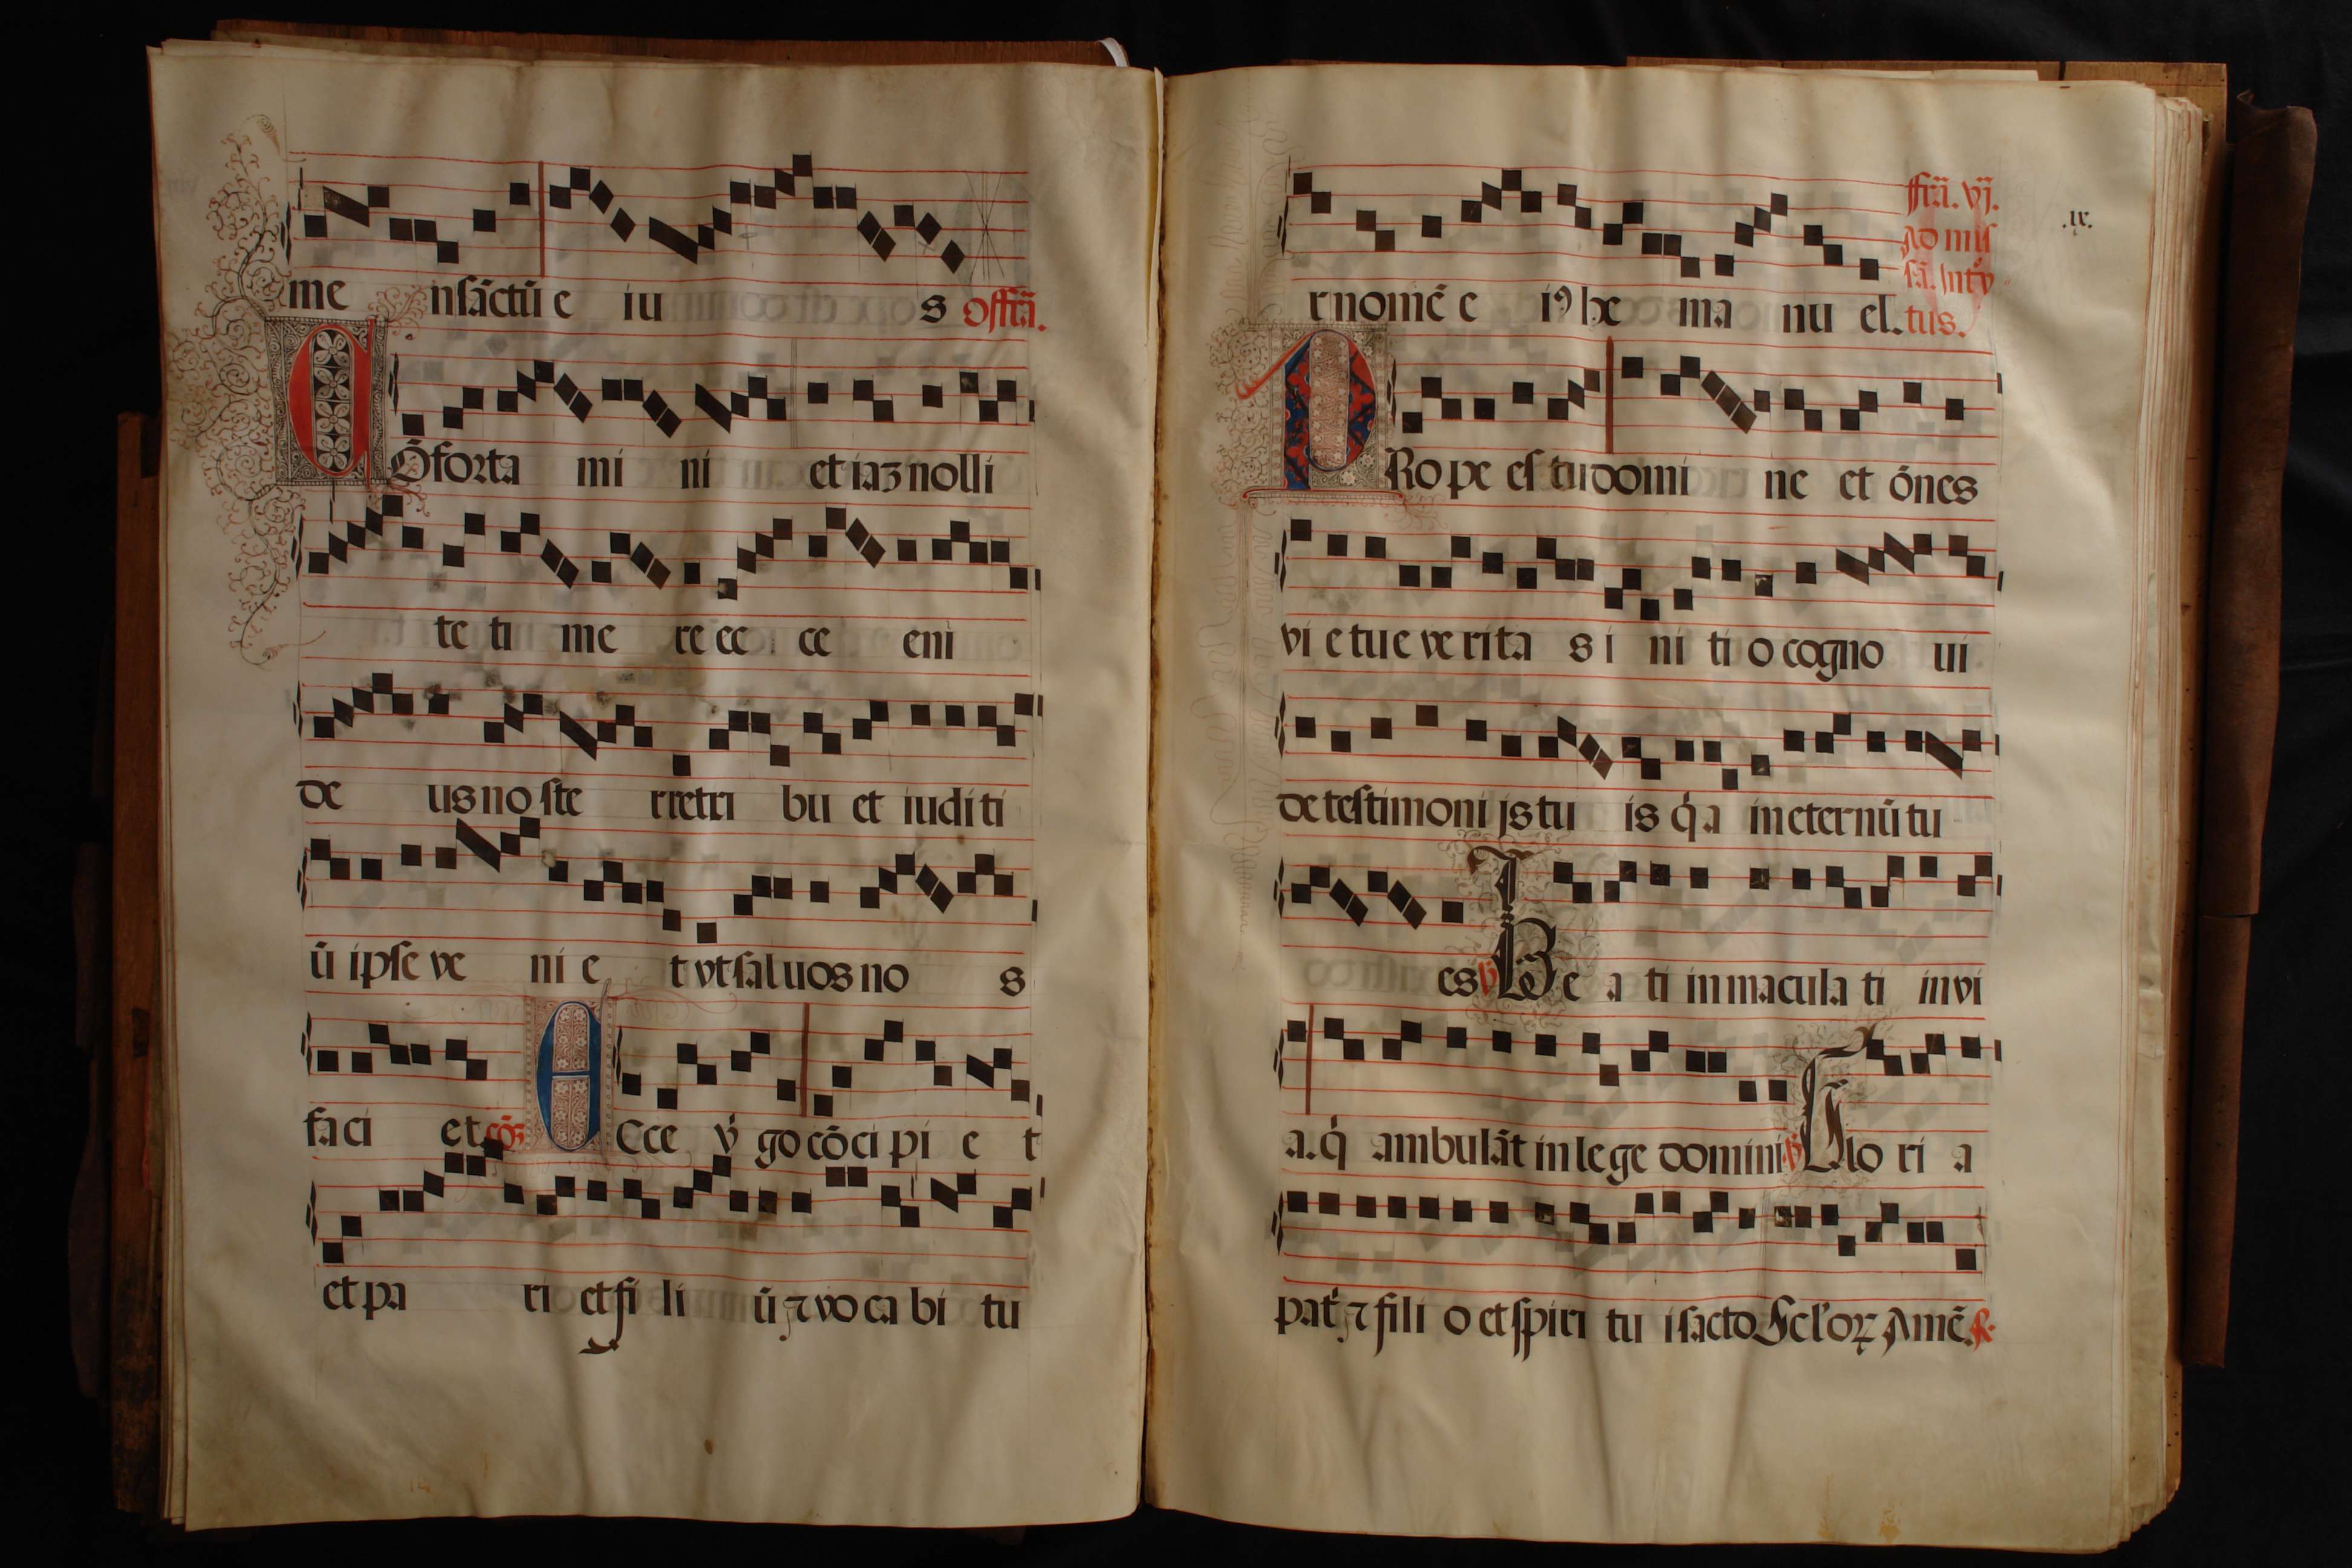 me nsāctū e iu s offrā.
CŌforta mi ni et iaʒ nolli
te ti me re ec ce eni
de us no ste r retri bu et iuditi
ū ipse ve ni e t vt saluos no s
faci et cōꝫ Ecce v̇ go cōci pi e t
et pa ri et fi li ū ⁊ vo ca bi tu
.ix.
r nomē e iꝰ he ma nu el.
ffrā. vj.
Ad mis
sā. Intro
tus.
PRo pe es tu domi ne et ōnes
vi e tu e ve rita s i ni ti o cogno ui
de testimoni js tu is q̇a in eternū tu
es ℣ Be a ti in macula ti in vi
a. q̇ ambulāt in le ge domini ℣ Glo ri a
pat̓ ⁊ fili o et spiri tu i sacto Scl̓oꝝ Amē.